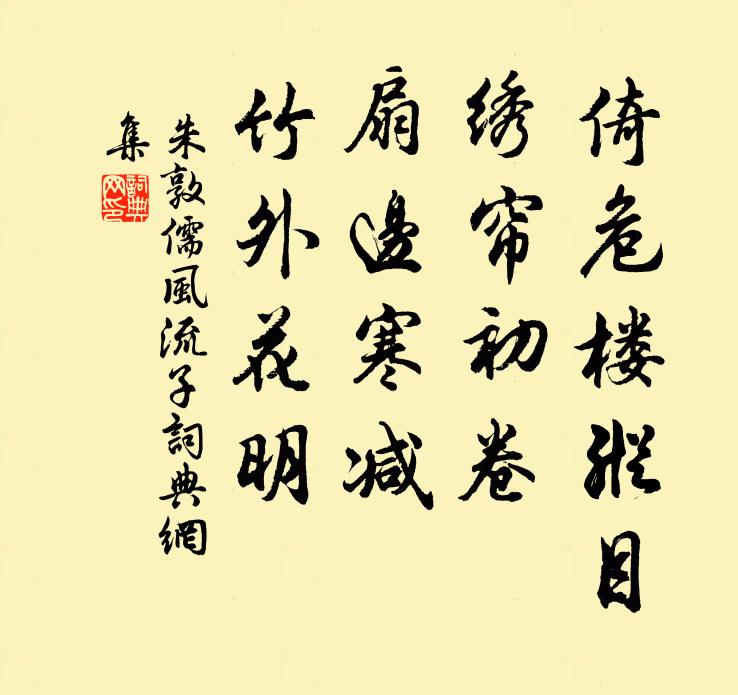 倚危楼縱目
绣帘初卷
扇邊寒减
竹外花明
朱敦儒風流子詞典網
集
詞典
网印